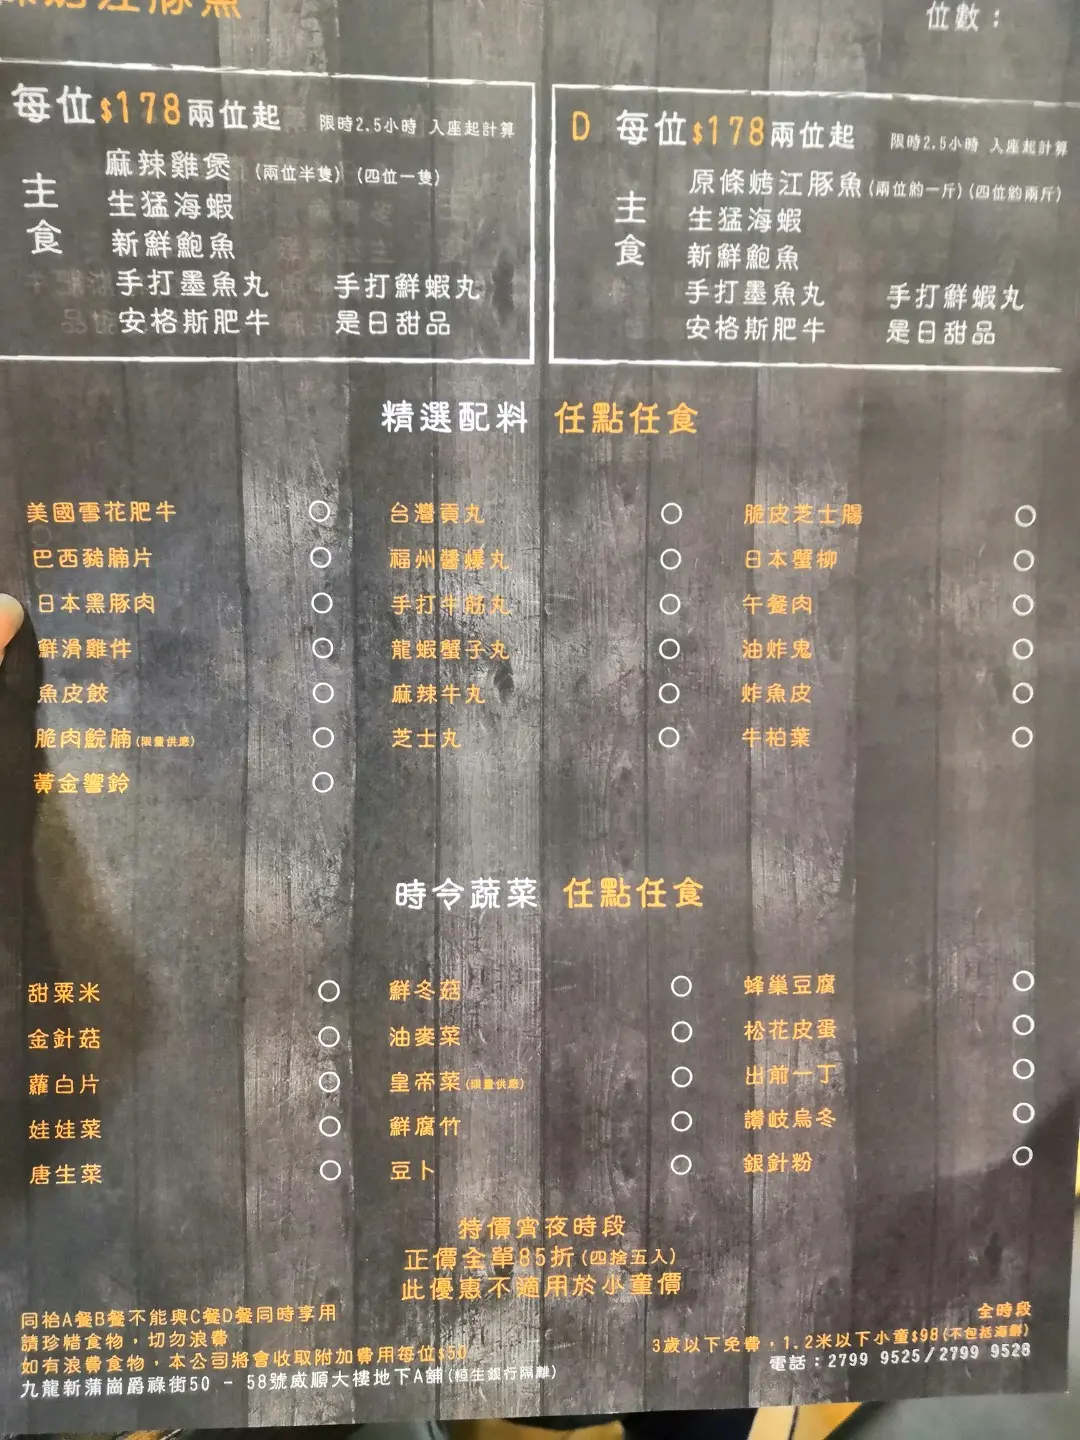 烤江豚魚
位數：
每位$178兩位起 限時2.5小時 入座起計算
主食
麻辣雞煲 (兩位半隻) (四位一隻)
生猛海蝦
新鮮鮑魚
手打墨魚丸 手打鮮蝦丸
安格斯肥牛 是日甜品
D 每位$178兩位起 限時2.5小時 入座起計算
主食
原條烤江豚魚(兩位約一斤)(四位約兩斤)
生猛海蝦
新鮮鮑魚
手打墨魚丸 手打鮮蝦丸
安格斯肥牛 是日甜品
精選配料 任點任食
美國雪花肥牛
巴西豬腩片
日本黑豚肉
鮮滑雞件
魚皮餃
脆肉鯇腩(限量供應)
黃金響鈴
台灣貢丸
福州醬爆丸
手打牛筋丸
龍蝦蟹子丸
麻辣牛丸
芝士丸
脆皮芝士腸
日本蟹柳
午餐肉
油炸鬼
炸魚皮
牛柏葉
時令蔬菜 任點任食
甜粟米
金針菇
蘿白片
娃娃菜
唐生菜
鮮冬菇
油麥菜
皇帝菜(限量供應)
鮮腐竹
豆卜
蜂巢豆腐
松花皮蛋
出前一丁
讚岐烏冬
銀針粉
特價宵夜時段
正價全單85折(四捨五入)
此優惠不適用於小童價
同枱A餐B餐不能與C餐D餐同時享用
請珍惜食物，切勿浪費
如有浪費食物，本公司將會收取附加費用每位$50
九龍新蒲崗爵祿街50 - 58號威順大樓地下A舖(恒生銀行隔離)
全時段
3歲以下免費，1.2米以下小童$98(不包括海鮮)
電話：2799 9525/2799 9528